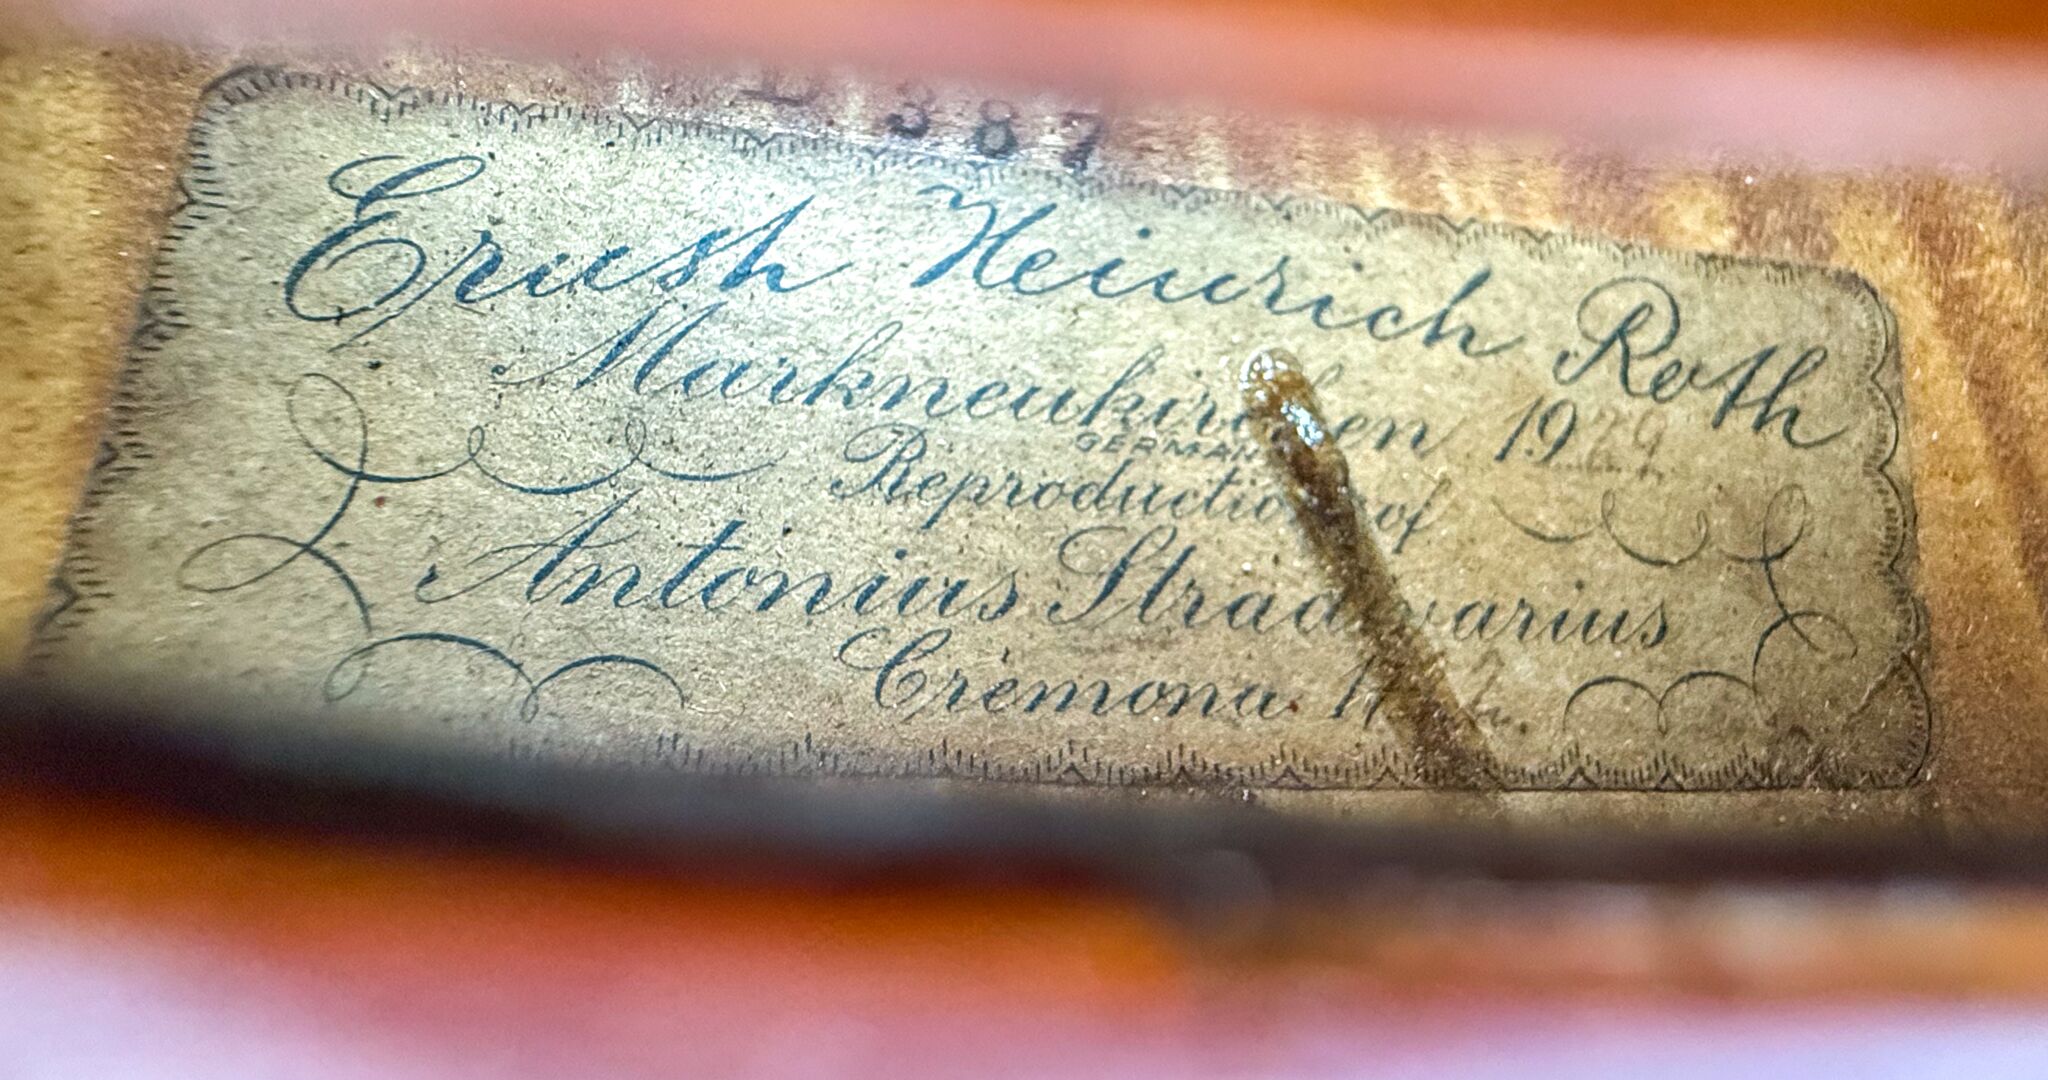 387
Ernst Heinrich Roth
Markneukirchen 1929
GERMANY
Reproduction of
Antonius Stradivarius
Cremona